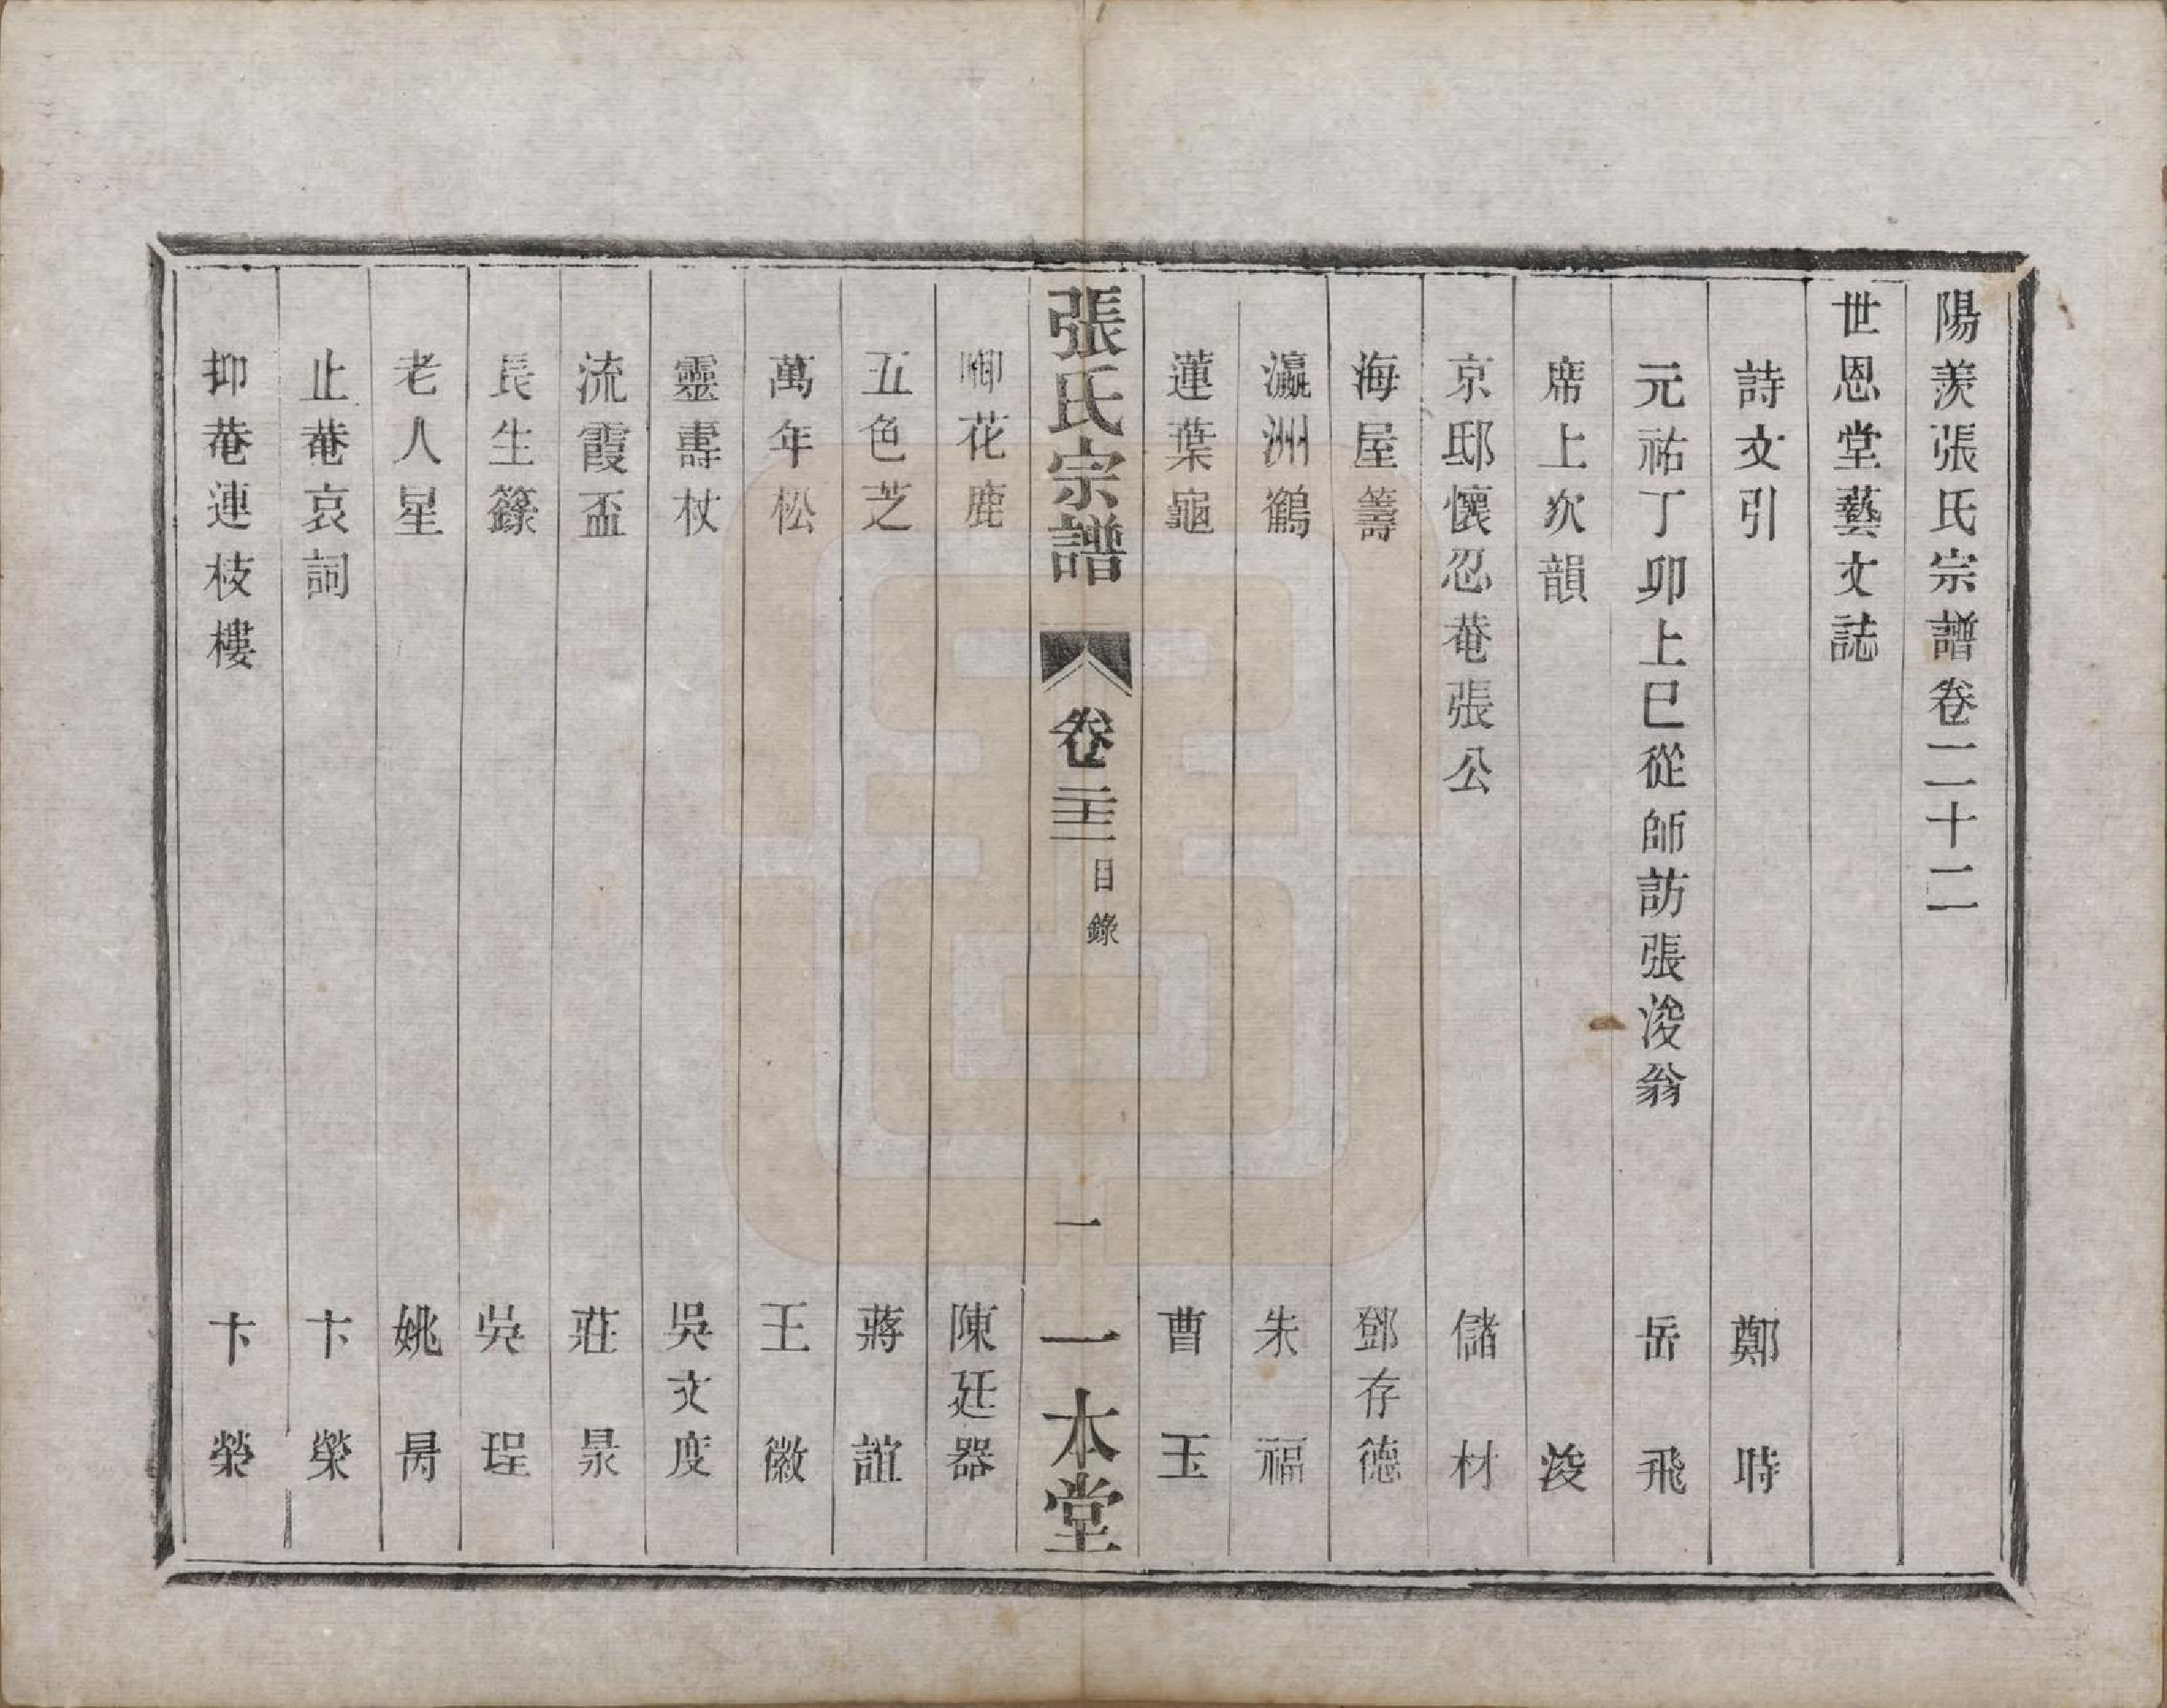 陽羨張氏宗譜卷二十二
世恩堂藝文誌
詩文引 鄭時
元祐丁卯上巳從師訪張浚翁 岳飛
席上次韻 浚
京邸懷忍菴張公 儲材
海屋籌 鄧存德
瀛洲鶴 朱福
蓮葉龜 曹玉
張氏宗譜 卷二十二 目錄 一 一本堂
啣花鹿 陳廷器
五色芝 蔣誼
萬年松 王徽
靈壽杖 吳文度
流霞盃 莊㫤
長生籙 吳珵
老人星 姚昺
止菴哀詞 卞榮
抑菴連枝樓 卞榮